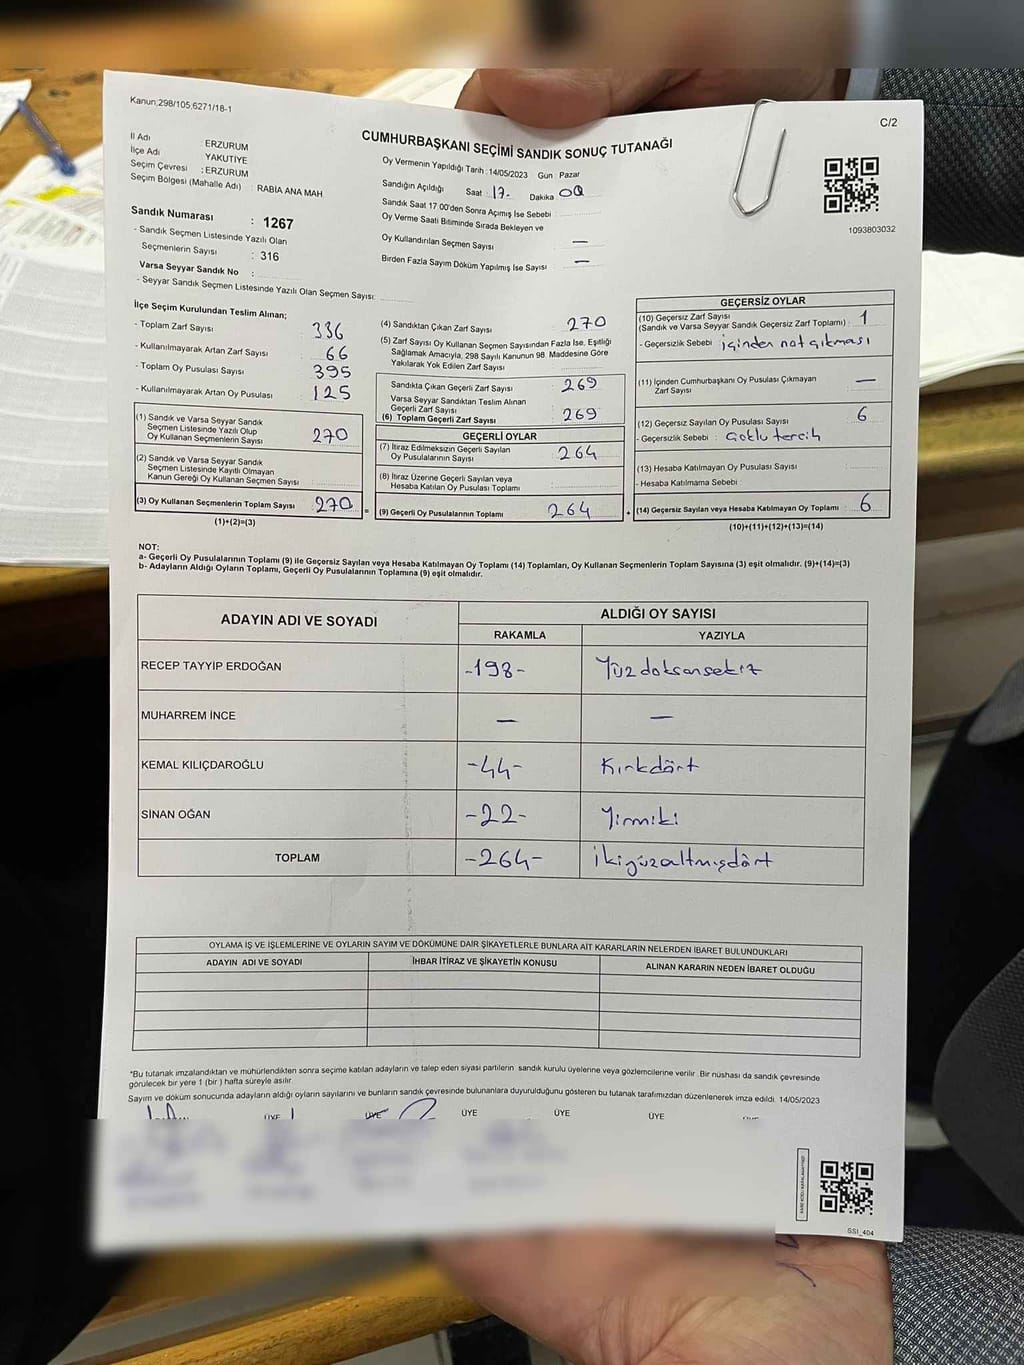 Kanun:298/105,6271/18-1
C/2
CUMHURBAŞKANI SEÇİMİ SANDIK SONUÇ TUTANAĞI
İl Adı ERZURUM
İlçe Adı YAKUTİYE
Seçim Çevresi : ERZURUM
Seçim Bölgesi (Mahalle Adı) : RABİA ANA MAH
Sandık Numarası : 1267
- Sandık Seçmen Listesinde Yazılı Olan
Seçmenlerin Sayısı : 316
Varsa Seyyar Sandık No :
- Seyyar Sandık Seçmen Listesinde Yazılı Olan Seçmen Sayısı:
Oy Vermenin Yapıldığı Tarih : 14/05/2023 Gün : Pazar
Sandığın Açıldığı Saat : 17. Dakika 00
Sandık Saat 17 00'den Sonra Açımış İse Sebebi
Oy Verme Saati Bitiminde Sırada Bekleyen ve
Oy Kullandırılan Seçmen Sayısı —
Birden Fazla Sayım Döküm Yapılmış İse Sayısı —
1093803032
İlçe Seçim Kurulundan Teslim Alınan;
- Toplam Zarf Sayısı 336
- Kullanılmayarak Artan Zarf Sayısı 66
- Toplam Oy Pusulası Sayısı 395
- Kullanılmayarak Artan Oy Pusulası 125
(1) Sandık ve Varsa Seyyar Sandık
Seçmen Listesinde Yazılı Olup
Oy Kullanan Seçmenlerin Sayısı 270
(2) Sandık ve Varsa Seyyar Sandık
Seçmen Listesinde Kayıtlı Olmayan
Kanun Gereği Oy Kullanan Seçmen Sayısı
(3) Oy Kullanan Seçmenlerin Toplam Sayısı 270 =
(1)+(2)=(3)
(4) Sandıktan Çıkan Zarf Sayısı 270
(5) Zarf Sayısı Oy Kullanan Seçmen Sayısından Fazla İse, Eşitliği
Sağlamak Amacıyla, 298 Sayılı Kanunun 98. Maddesine Göre
Yakılarak Yok Edilen Zarf Sayısı
Sandıkta Çıkan Geçerli Zarf Sayısı 269
Varsa Seyyar Sandıktan Teslim Alınan
Geçerli Zarf Sayısı
(6) Toplam Geçerli Zarf Sayısı 269
GEÇERLİ OYLAR
(7) İtiraz Edilmeksizin Geçerli Sayılan
Oy Pusulalarının Sayısı 264
(8) İtiraz Üzerine Geçerli Sayılan veya
Hesaba Katılan Oy Pusulası Toplamı
(9) Geçerli Oy Pusulalarının Toplamı 264 +
GEÇERSİZ OYLAR
(10) Geçersiz Zarf Sayısı 1
(Sandık ve Varsa Seyyar Sandık Geçersiz Zarf Toplamı)
- Geçersizlik Sebebi : içinden not çıkması
(11) İçinden Cumhurbaşkanı Oy Pusulası Çıkmayan
Zarf Sayısı —
(12) Geçersiz Sayılan Oy Pusulası Sayısı 6
- Geçersizlik Sebebi : Çoklu tercih
(13) Hesaba Katılmayan Oy Pusulası Sayısı
- Hesaba Katılmama Sebebi
(14) Geçersiz Sayılan veya Hesaba Katılmayan Oy Toplamı 6
(10)+(11)+(12)+(13)=(14)
NOT:
a- Geçerli Oy Pusulalarının Toplamı (9) ile Geçersiz Sayılan veya Hesaba Katılmayan Oy Toplamı (14) Toplamları, Oy Kullanan Seçmenlerin Toplam Sayısına (3) eşit olmalıdır. (9)+(14)=(3)
b- Adayların Aldığı Oyların Toplamı, Geçerli Oy Pusulalarının Toplamına (9) eşit olmalıdır.
ADAYIN ADI VE SOYADI
ALDIĞI OY SAYISI
RAKAMLA YAZIYLA
RECEP TAYYİP ERDOĞAN -198- Yüzdoksansekiz
MUHARREM İNCE — —
KEMAL KILIÇDAROĞLU -44- Kırkdört
SİNAN OĞAN -22- Yirmiki
TOPLAM -264- İkiyüzaltmışdört
OYLAMA İŞ VE İŞLEMLERİNE VE OYLARIN SAYIM VE DÖKÜMÜNE DAİR ŞİKAYETLERLE BUNLARA AİT KARARLARIN NELERDEN İBARET BULUNDUKLARI
ADAYIN ADI VE SOYADI İHBAR İTİRAZ VE ŞİKAYETİN KONUSU ALINAN KARARIN NEDEN İBARET OLDUĞU
*Bu tutanak imzalandıktan ve mühürlendikten sonra seçime katılan adayların ve talep eden siyasi partilerin sandık kurulu üyelerine veya gözlemcilerine verilir. Bir nüshası da sandık çevresinde
görülecek bir yere 1 (bir) hafta süreyle asılır.
Sayım ve döküm sonucunda adayların aldığı oyların sayılarını ve bunların sandık çevresinde bulunanlara duyurulduğunu gösteren bu tutanak tarafımızdan düzenlenerek imza edildi. 14/05/2023
ÜYE ÜYE ÜYE ÜYE ÜYE
SS1_404